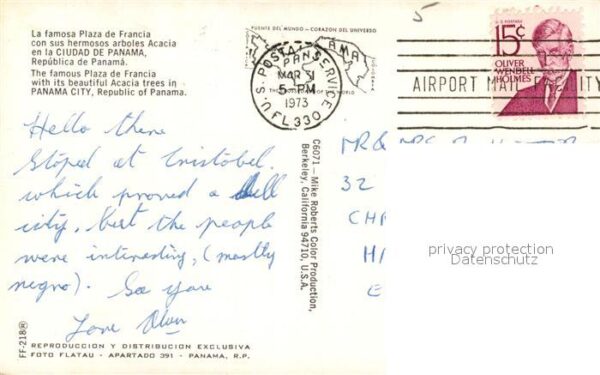 La famosa Plaza de Francia
con sus hermosos arboles Acacia
en la CIUDAD DE PANAMA,
República de Panamá.
The famous Plaza de Francia
with its beautiful Acacia trees in
PANAMA CITY, Republic of Panama.
PUENTE DEL MUNDO - CORAZON DEL UNIVERSO
PANAMA
U.S. POSTAL SERVICE
MAR 31
5 PM
1973
FL 330
AIRPORT MAIL FACILITY
5
U.S. POSTAGE
15¢
OLIVER
WENDELL
HOLMES
Hello there
Stoped at Cristobel
which proved a dull
city, but the people
were interesting, (mostly
negro). See you
Love
C6071 — Mike Roberts Color Production,
Berkeley, California 94710, U.S.A.
MR &
32
CH
H
E
privacy protection
Datenschutz
FF-218®
REPRODUCCION Y DISTRIBUCION EXCLUSIVA
FOTO FLATAU - APARTADO 391 - PANAMA, R.P.